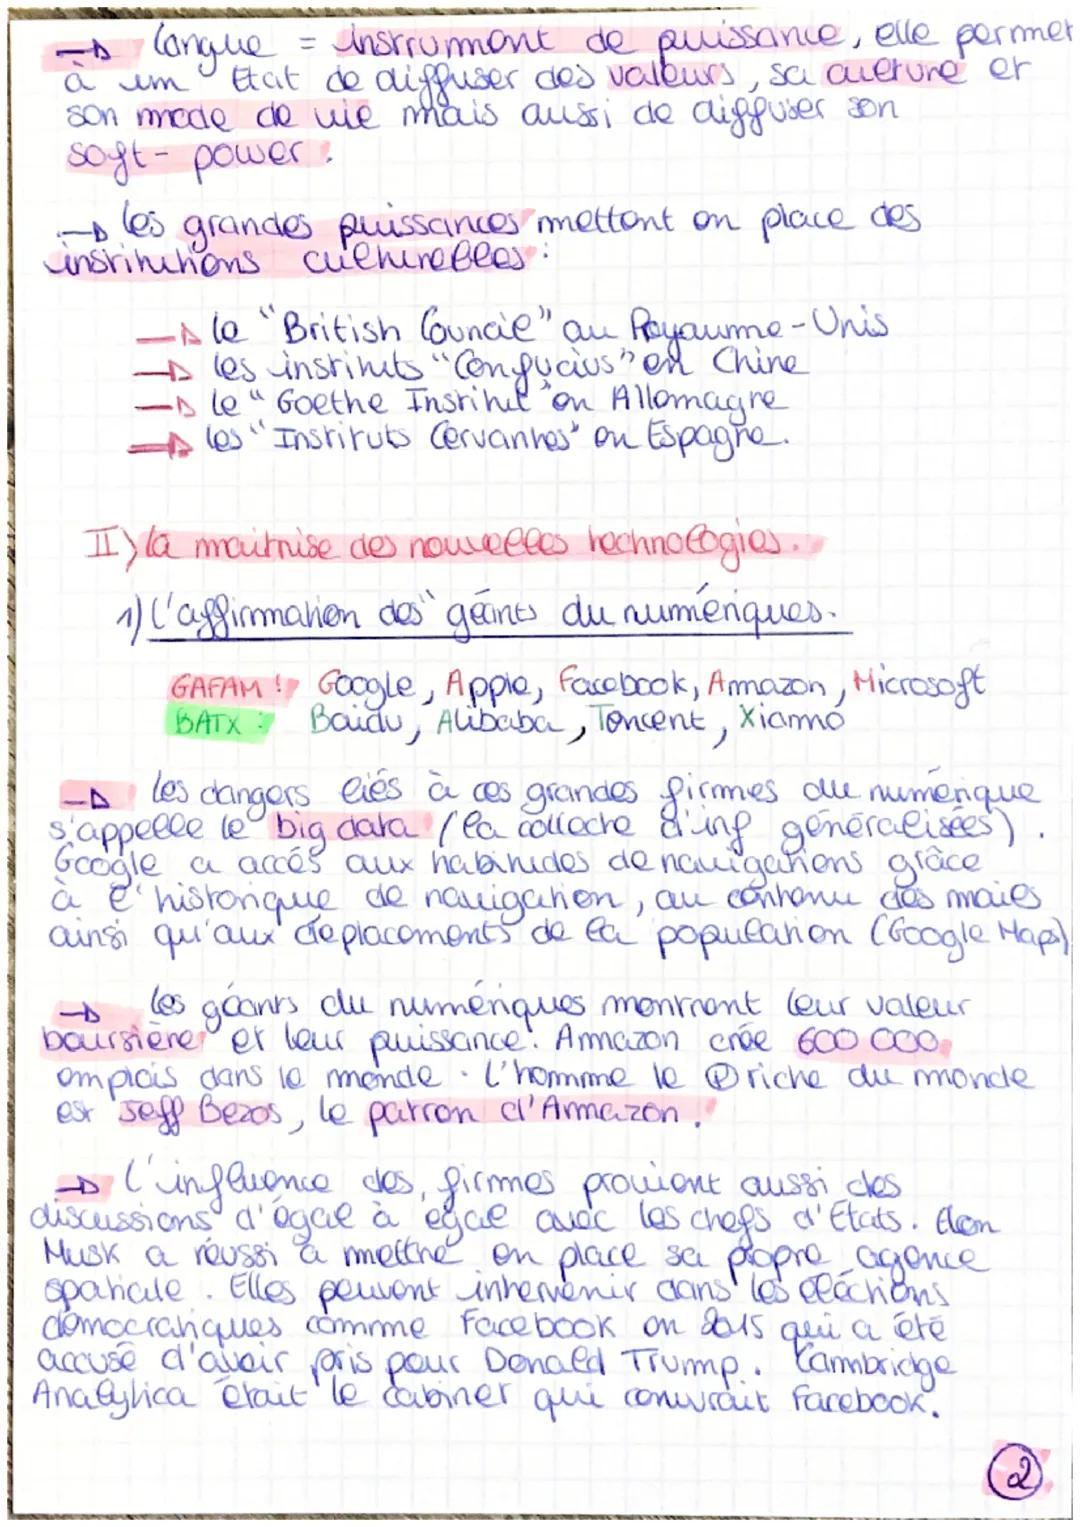 → langue = instrument de puissance, elle permet
à un Etat de diffuser des valeurs, sa culture et
son mode de vie mais aussi de diffuser son
soft-power.
→ les grandes puissances mettent en place des
institutions culturelles :
→ le "British Council" au Royaume-Unis
→ les instituts "Confucius" en Chine
→ le "Goethe Institut" en Allemagne
→ les "Instituts Cervantes" en Espagne.
II) la maitrise des nouvelles technologies.
1) L'affirmation des "géants du numériques.
GAFAM : Google, Apple, Facebook, Amazon, Microsoft
BATX : Baidu, Alibaba, Tencent, Xiamo
→ les dangers liés à ces grandes firmes du numérique
s'appelle le big data (la collecte d'inf généralisées).
Google a accés aux habitudes de navigations grâce
à l'historique de navigation, au contenu des mails
ainsi qu'aux déplacements de la population (Google Maps)
→ les géants du numériques montrent leur valeur
boursière et leur puissance. Amazon crée 600 000
emplois dans le monde. L'homme le ⊕ riche du monde
est Jeff Bezos, le patron d'Amazon.
→ L'influence des firmes provient aussi des
discussions d'égal à égal avec les chefs d'Etats. Elon
Musk a réussi à mettre en place sa propre agence
spatiale. Elles peuvent intervenir dans les élections
démocratiques comme Facebook en 2015 qui a été
accusé d'avoir pris pour Donald Trump. Cambridge
Analytica était le cabinet qui couvrait Facebook.
2